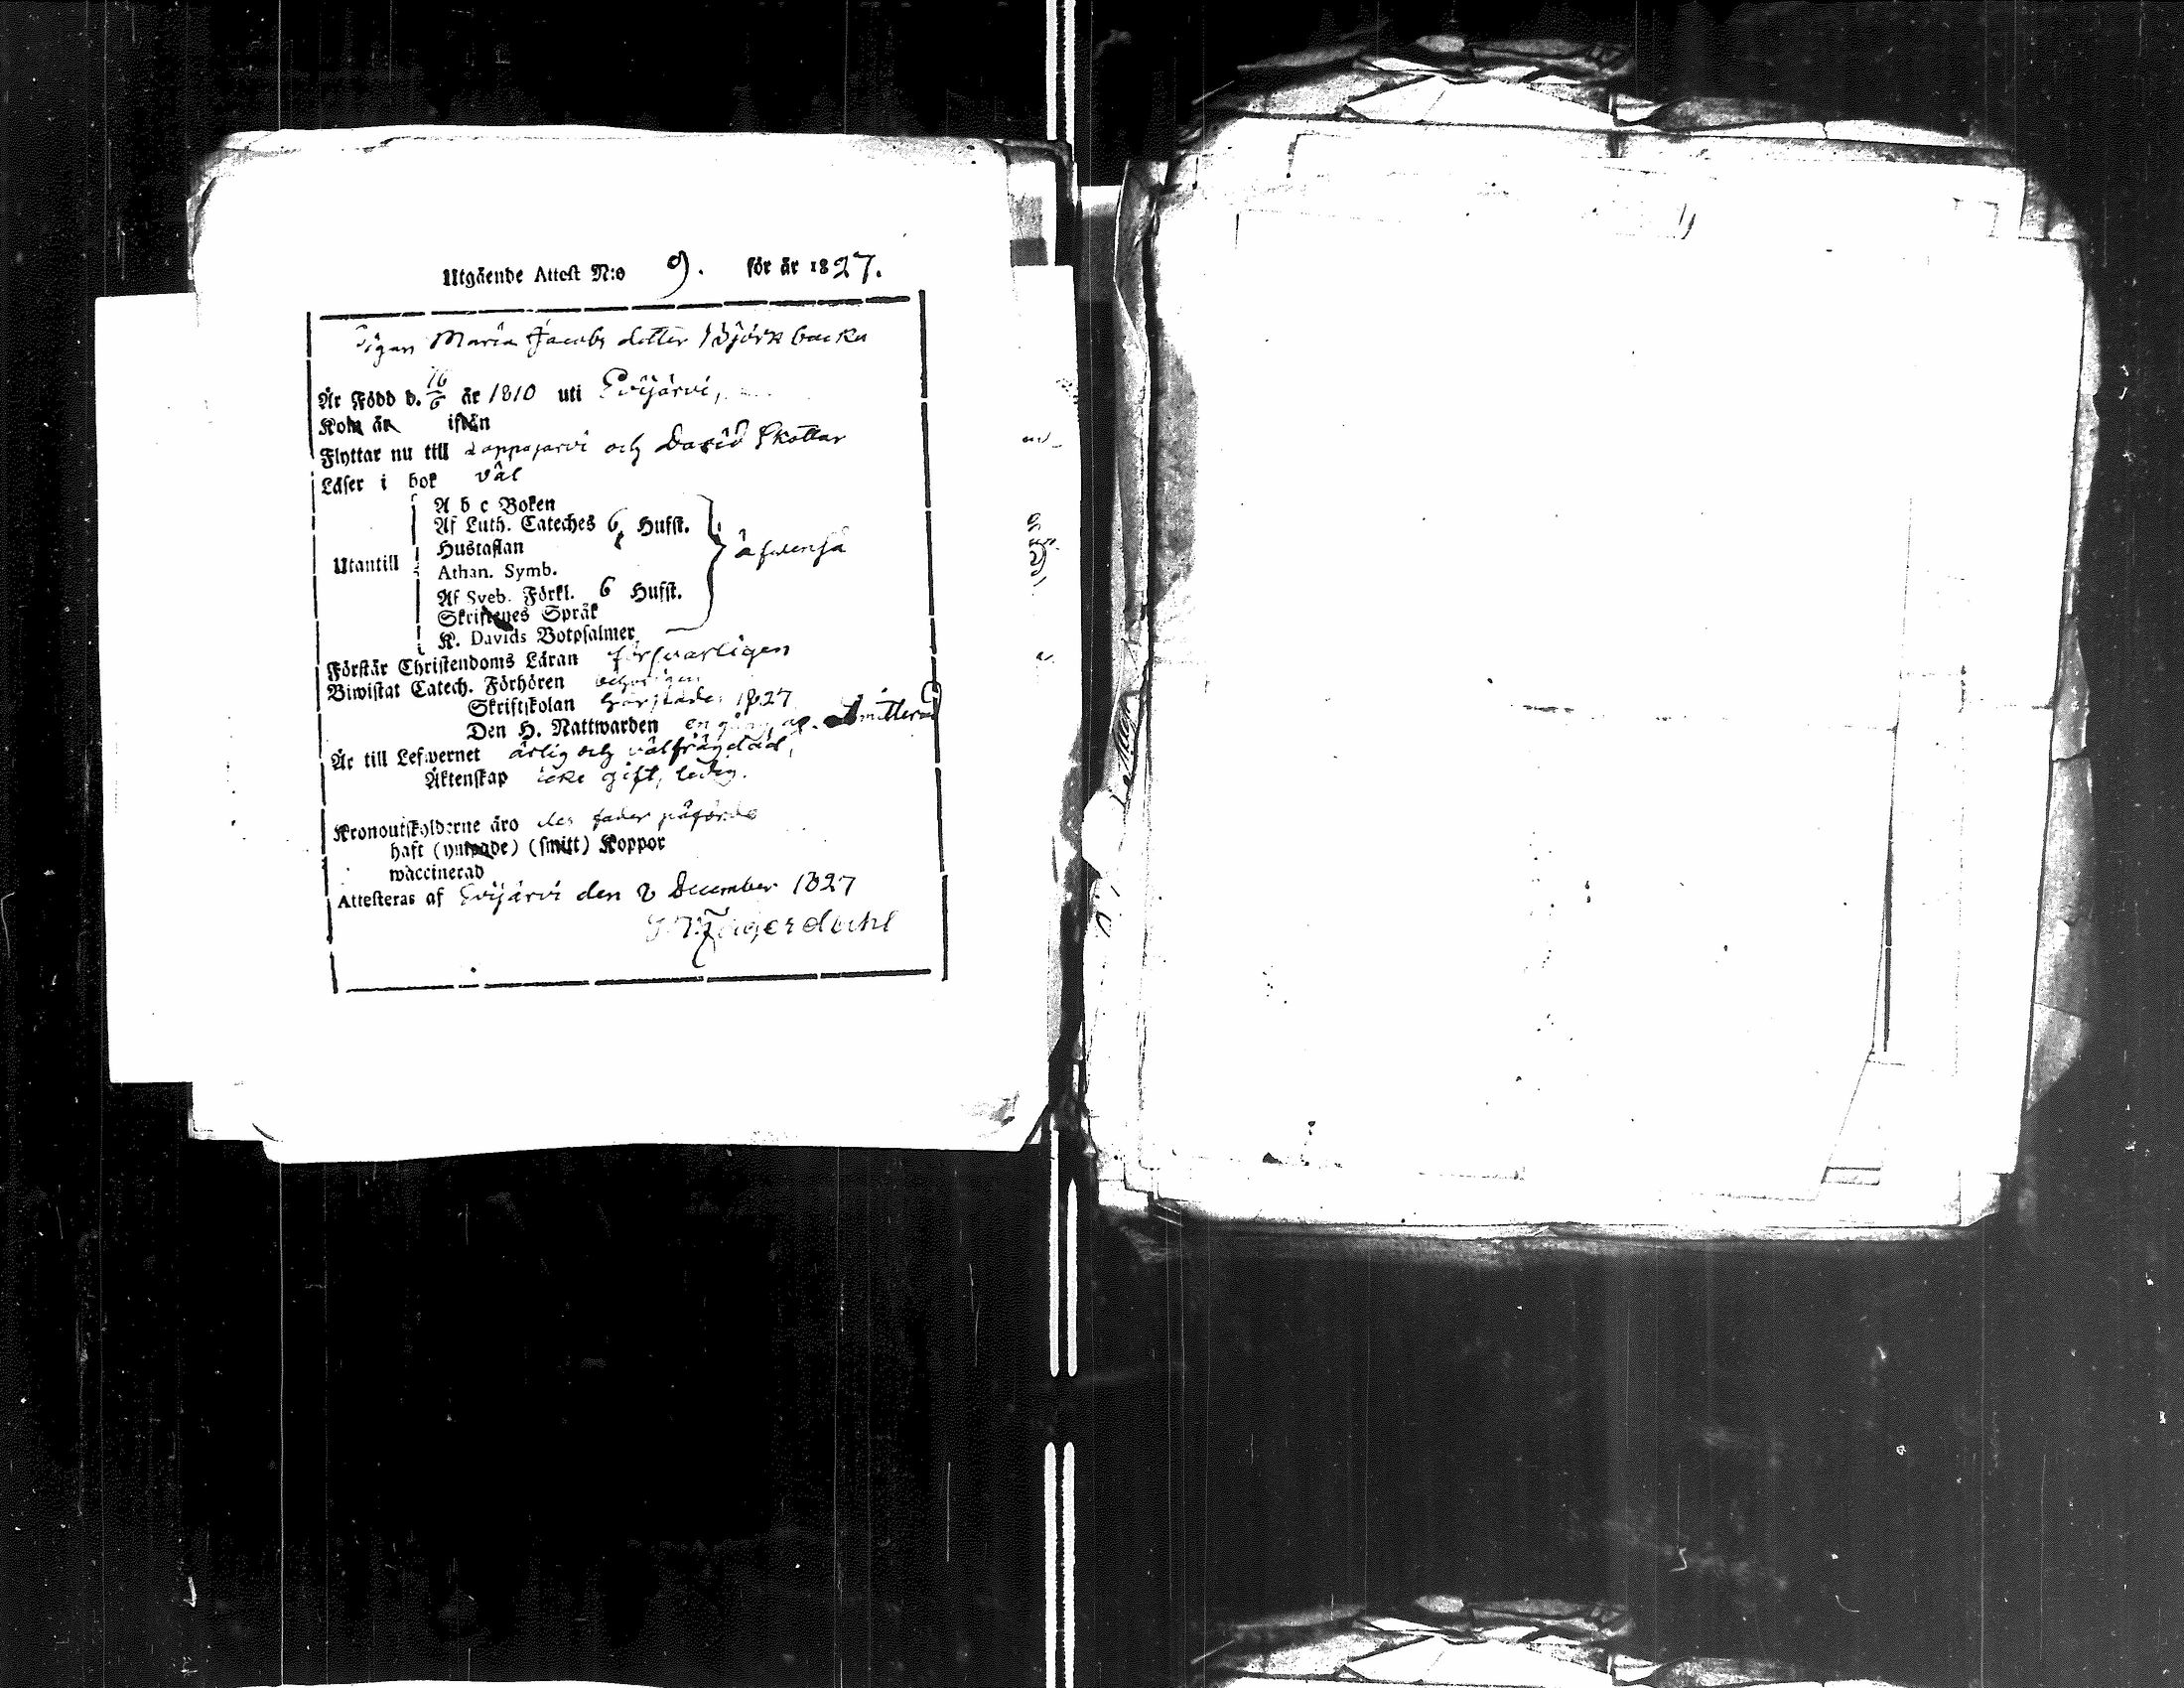 Utgående Attest N:o 9. för år 1827.
Pigan Maria Jacobs dotter Björkbacka
Är Född d. 16/6 år 1810 uti Evijärvi,
Kom år ifrån
Flyttar nu till Lappajärvi och David Skottar
Läser i bok väl
Utantill
A b c Boken
Af Luth. Cateches 6 Hufst.
Hustaflan
Athan. Symb.
Af Sveb. Förkl. 6 Hufst.
Skriftenes Språk
K. Davids Botpsalmer
äfvenså
Förstår Christendoms Läran försvarligen
Biwistat Catech. Förhören
Skriftskolan härstädes 1827
Den H. Nattwarden en gång admitterad
Är till Lefwernet ärlig och välfrägdad,
Äktenskap icke gift, ledig.
Kronoutskylderne äro des fader påförde
haft (ympade) (smitt) Koppor
waccinerad
Attesteras af Evijärvi den 2 December 1827